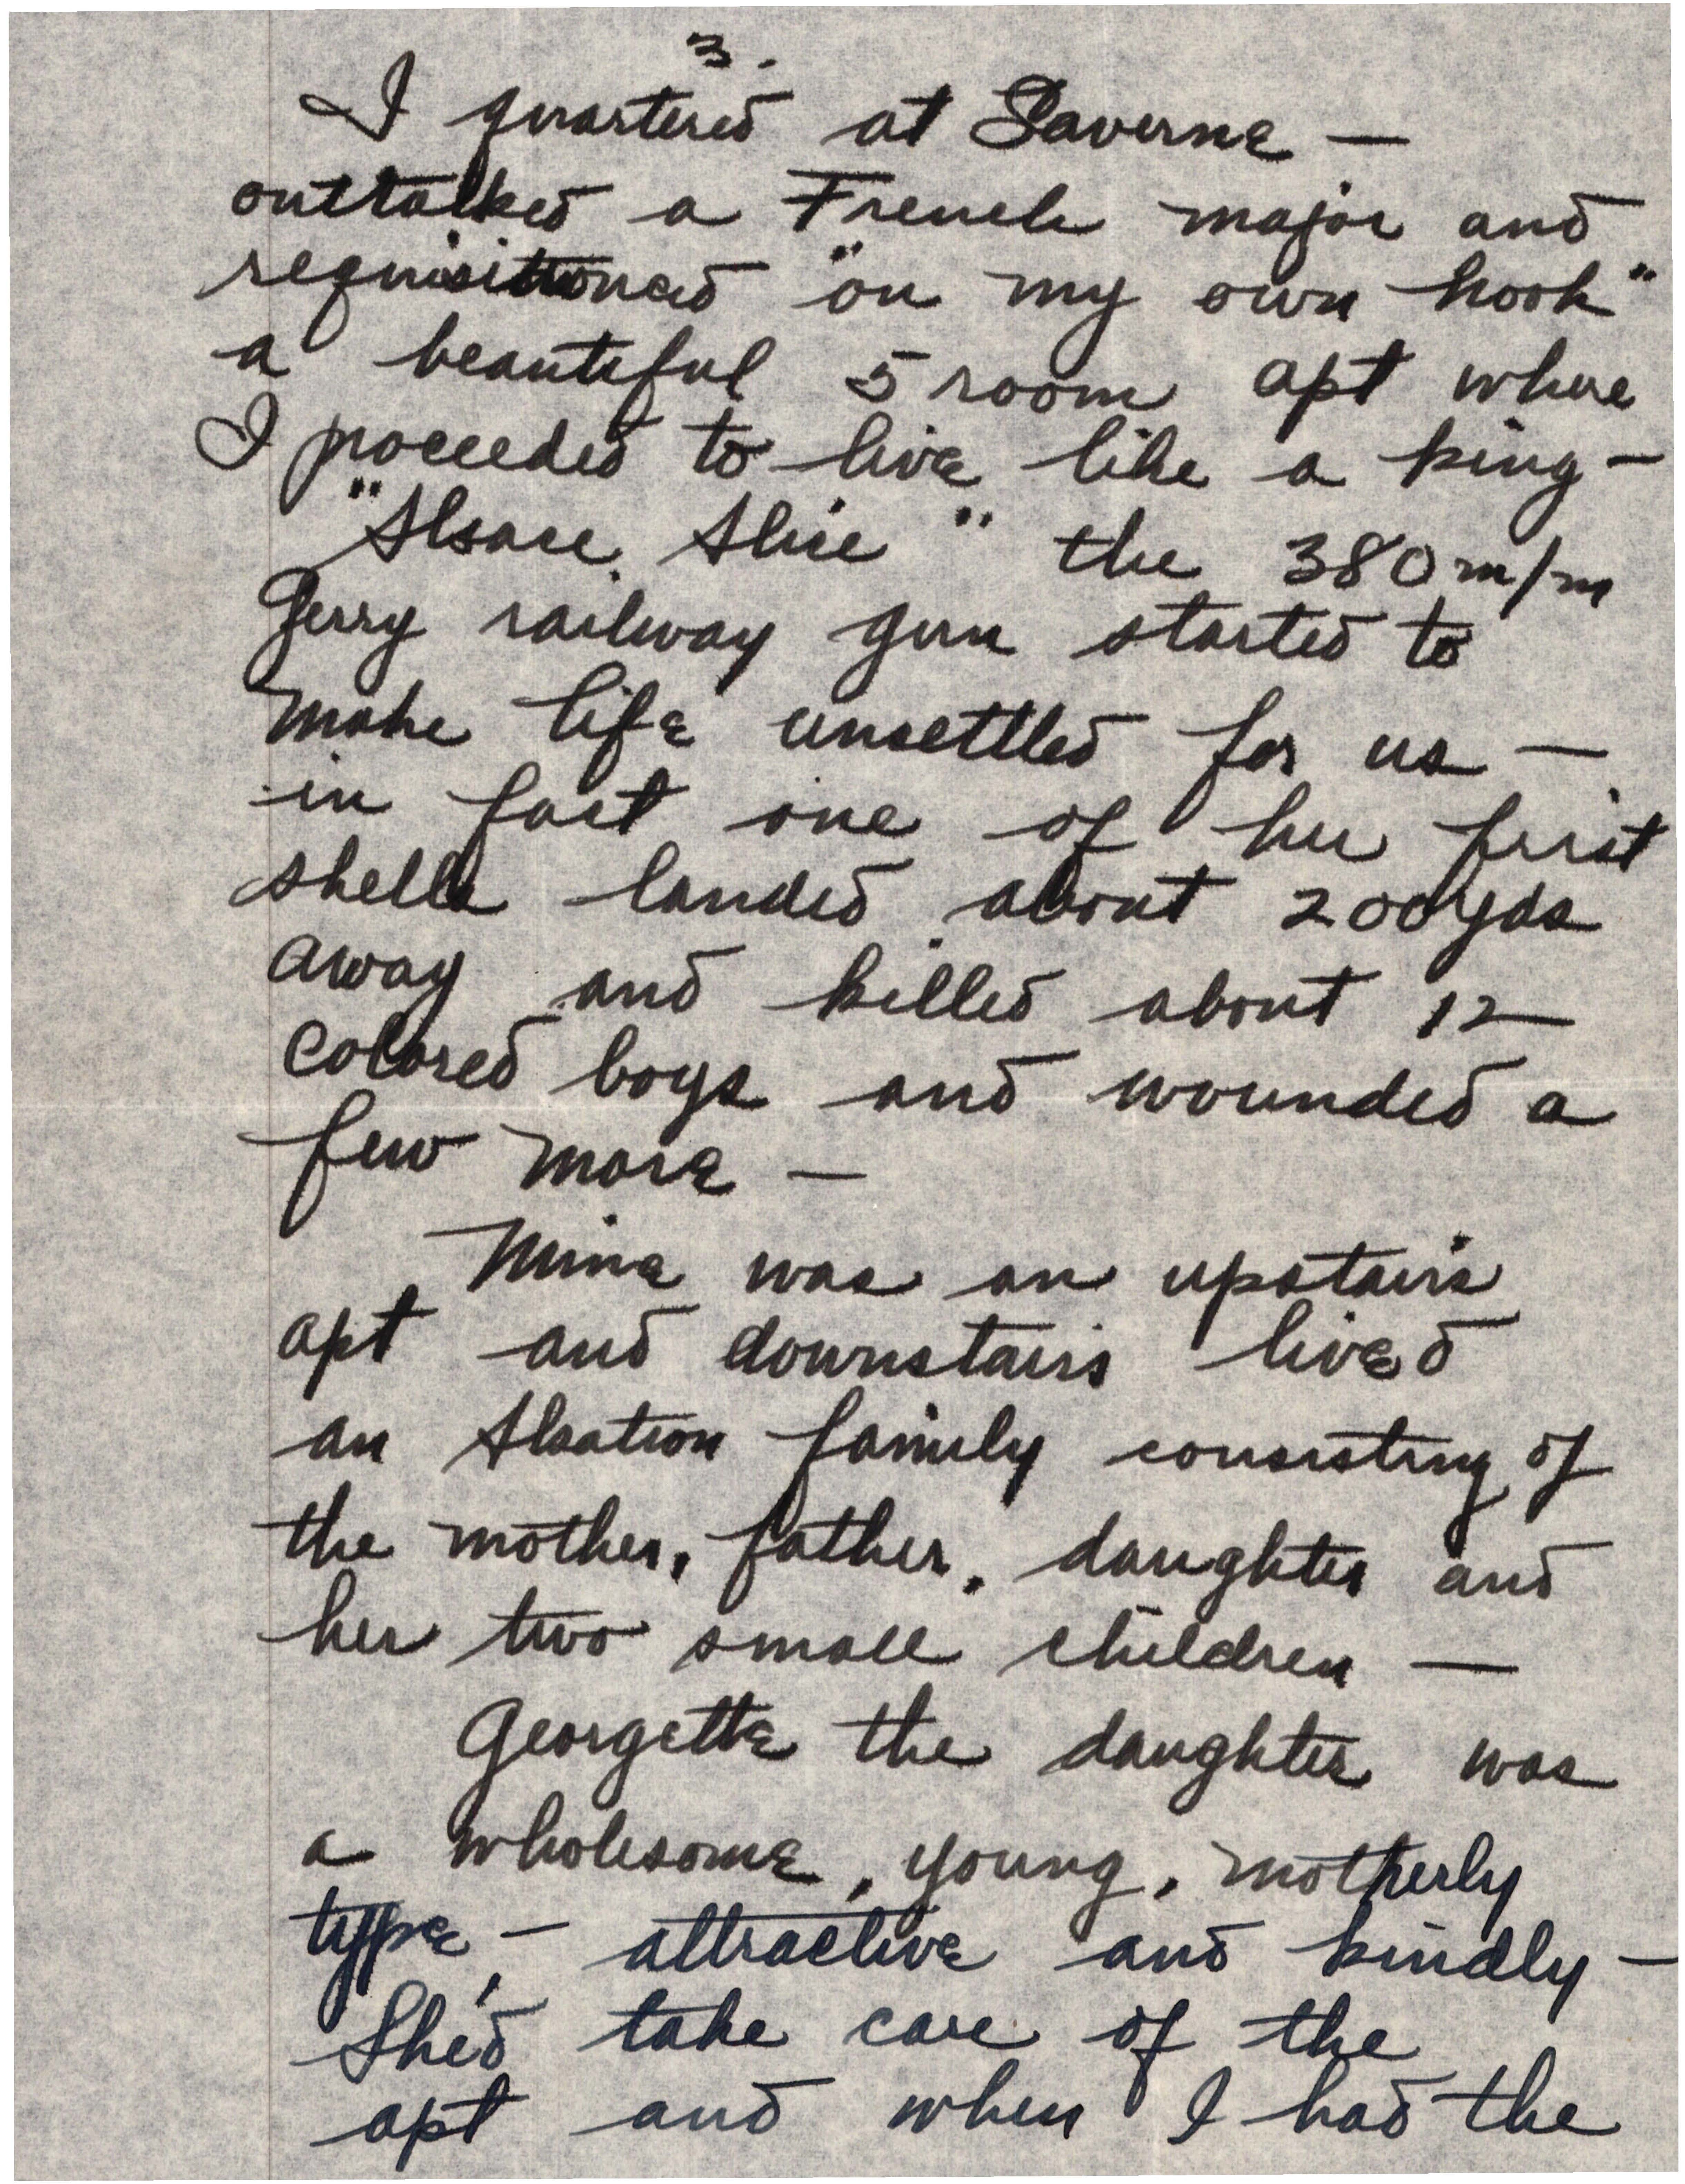 3.
I quartered at Saverne —
outtalked a French major and
requisitioned "on my own hook"
a beautiful 5 room apt where
I proceeded to live like a king —
"Alsace Alice" the 380 m/m
Jerry railway gun started to
make life unsettled for us —
in fact one of her first
shells landed about 200 yds
away and killed about 12
colored boys and wounded a
few more —
Mine was an upstairs
apt and downstairs lived
an Alsatian family consisting of
the mother, father, daughter and
her two small children —
Georgette the daughter was
a wholesome, young, motherly
type, — attractive and kindly —
She'd take care of the
apt and when I had the